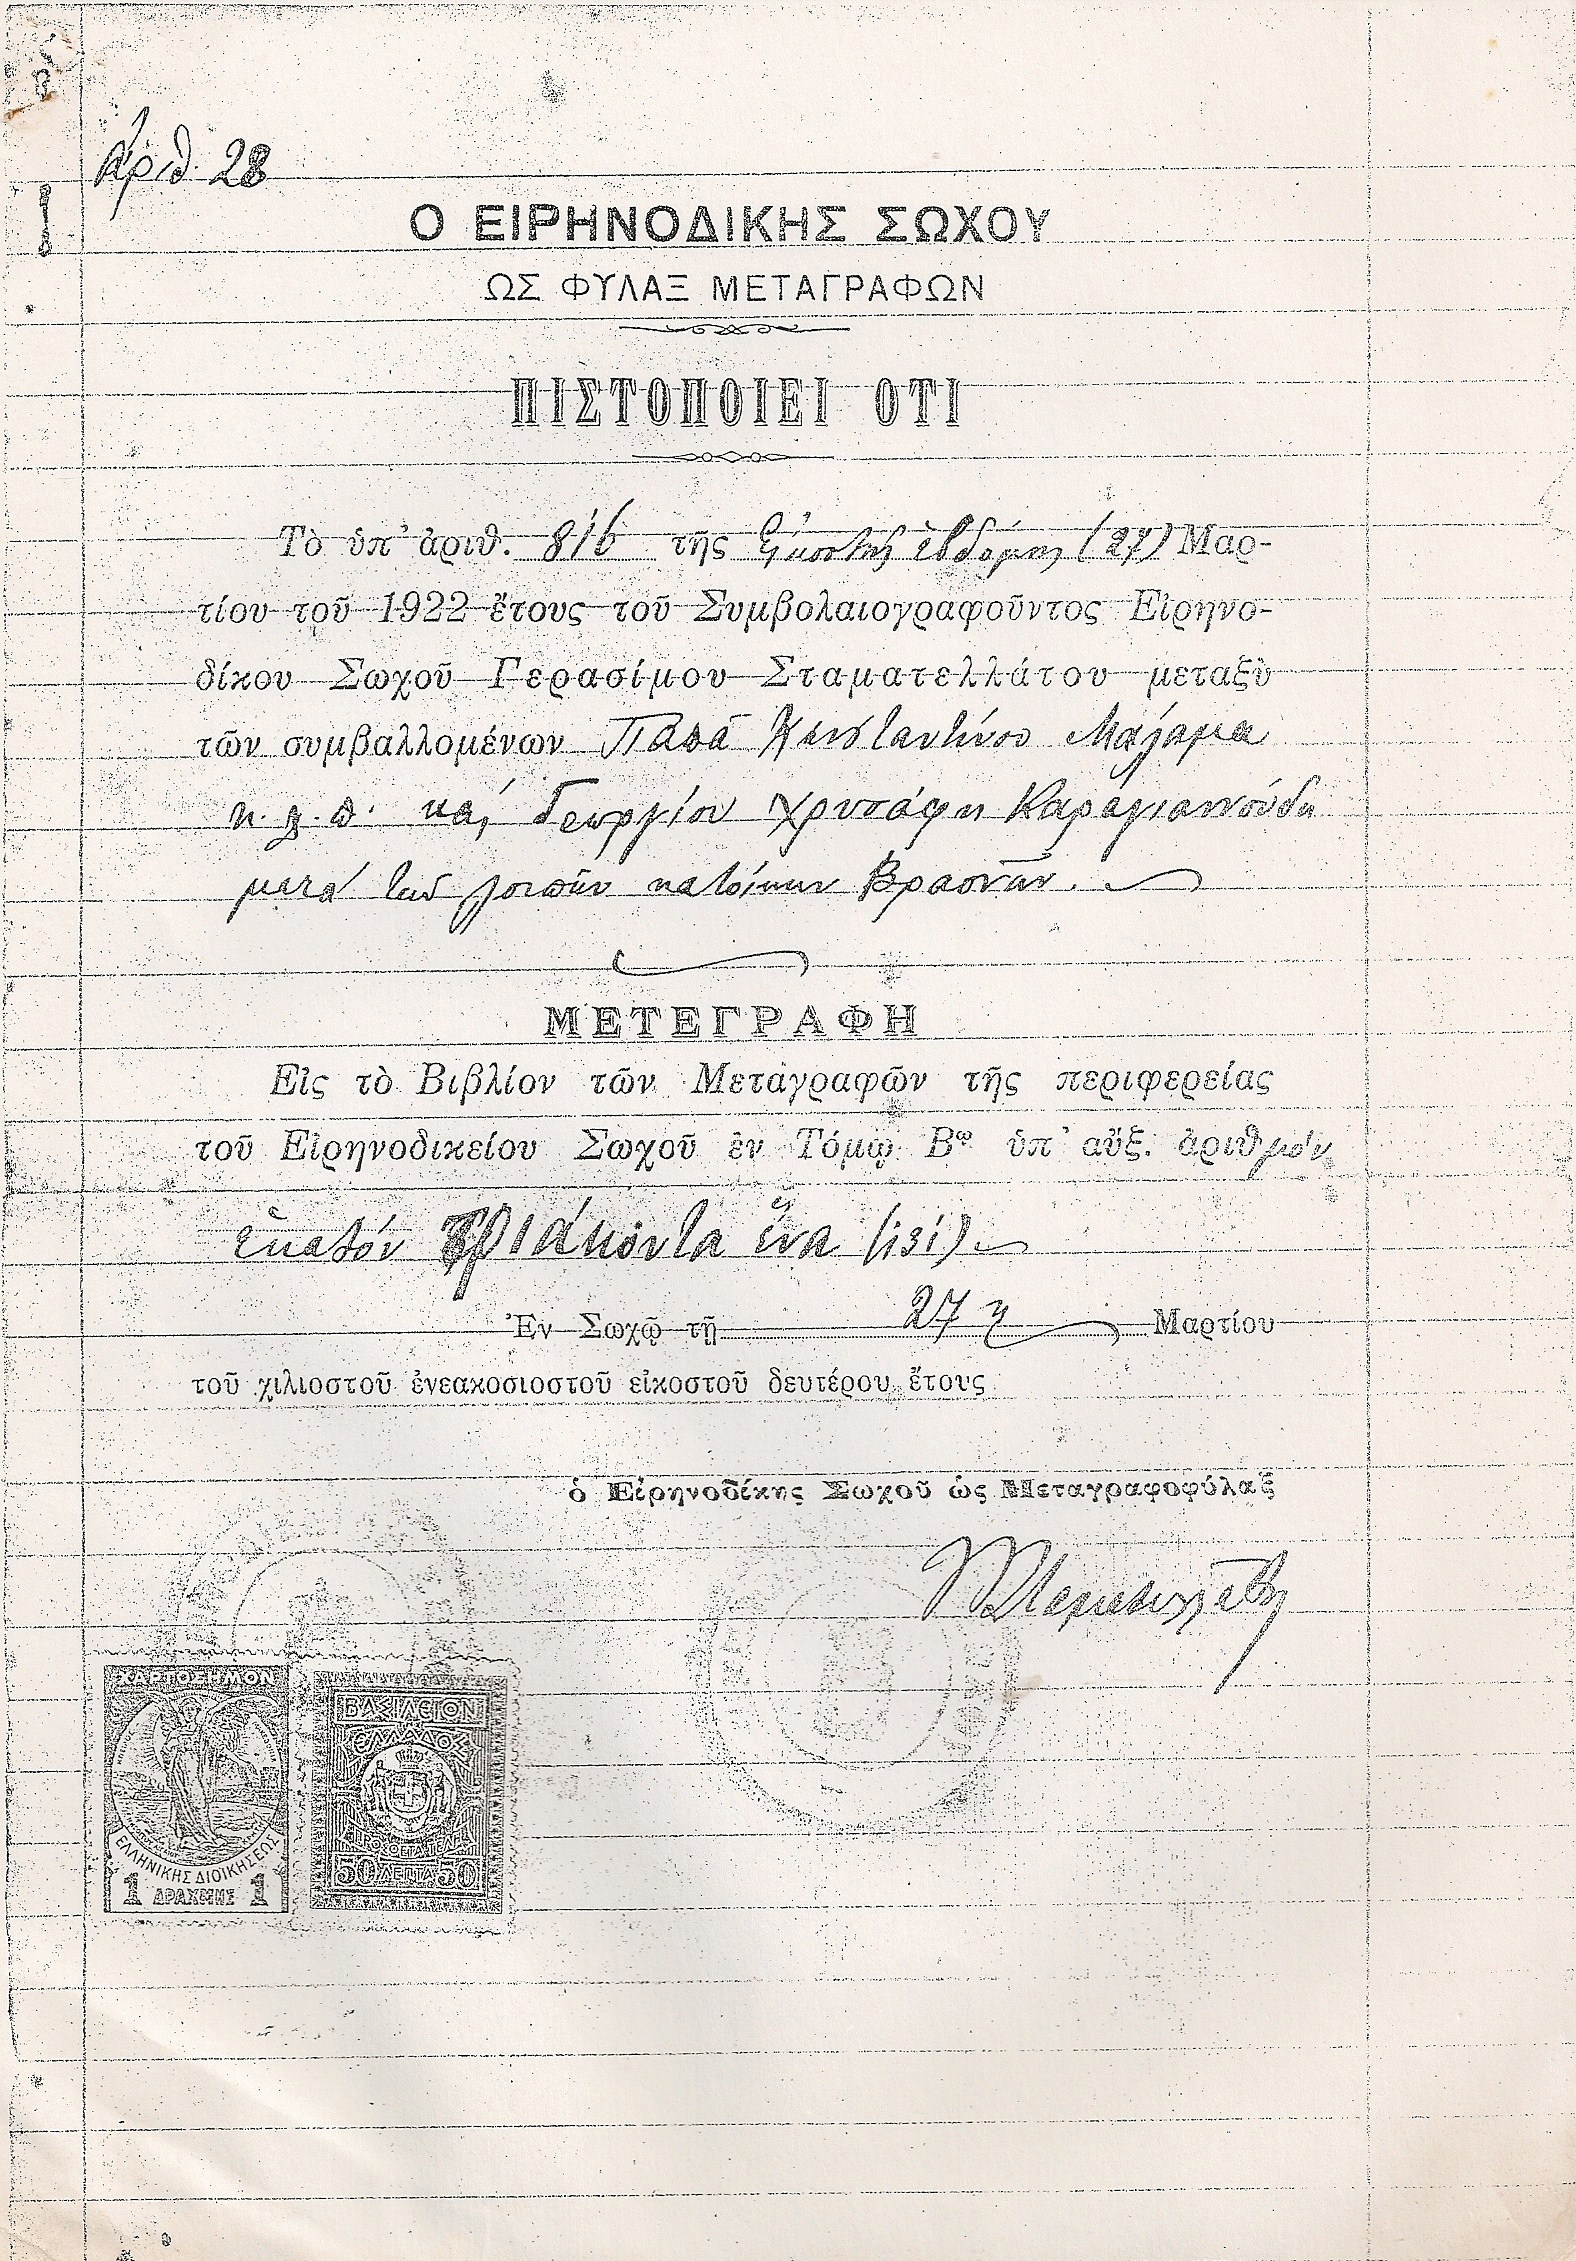 Ἀριθ. 28
Ο ΕΙΡΗΝΟΔΙΚΗΣ ΣΩΧΟΥ
ΩΣ ΦΥΛΑΞ ΜΕΤΑΓΡΑΦΩΝ
ΠΙΣΤΟΠΟΙΕΙ ΟΤΙ
Τὸ ὑπ' ἀριθ. 816 τῆς Εἰκοστῆς ἑβδόμης (27) Μαρ-
τίου τοῦ 1922 ἔτους τοῦ Συμβολαιογραφοῦντος Εἰρηνο-
δίκου Σωχοῦ Γερασίμου Σταματελλάτου μεταξὺ
τῶν συμβαλλομένων Παπᾶ Κωνσταντίνου Μαλάμα
κ.λ.π. καὶ Γεωργίου Χρυσάφη Καραγιαννούδη
μετὰ τῶν λοιπῶν κατοίκων Βρασνῶν.
ΜΕΤΕΓΡΑΦΗ
Εἰς τὸ Βιβλίον τῶν Μεταγραφῶν τῆς περιφερείας
τοῦ Εἰρηνοδικείου Σωχοῦ ἐν Τόμῳ Βῳ ὑπ' αὔξ. ἀριθμόν
ἑκατόν τριάκοντα ἕνα (131)
Ἐν Σωχῷ τῇ 27ῃ Μαρτίου
τοῦ χιλιοστοῦ ἐνεακοσιοστοῦ εἰκοστοῦ δευτέρου ἔτους
ὁ Εἰρηνοδίκης Σωχοῦ ὡς Μεταγραφοφύλαξ
ΧΑΡΤΟΣΗΜΟΝ
ΕΛΛΗΝΙΚΗΣ ΔΙΟΙΚΗΣΕΩΣ
1 ΔΡΑΧΜΗΣ 1
ΒΑΣΙΛΕΙΟΝ
ΕΛΛΑΔΟΣ
50 ΛΕΠΤΑ 50